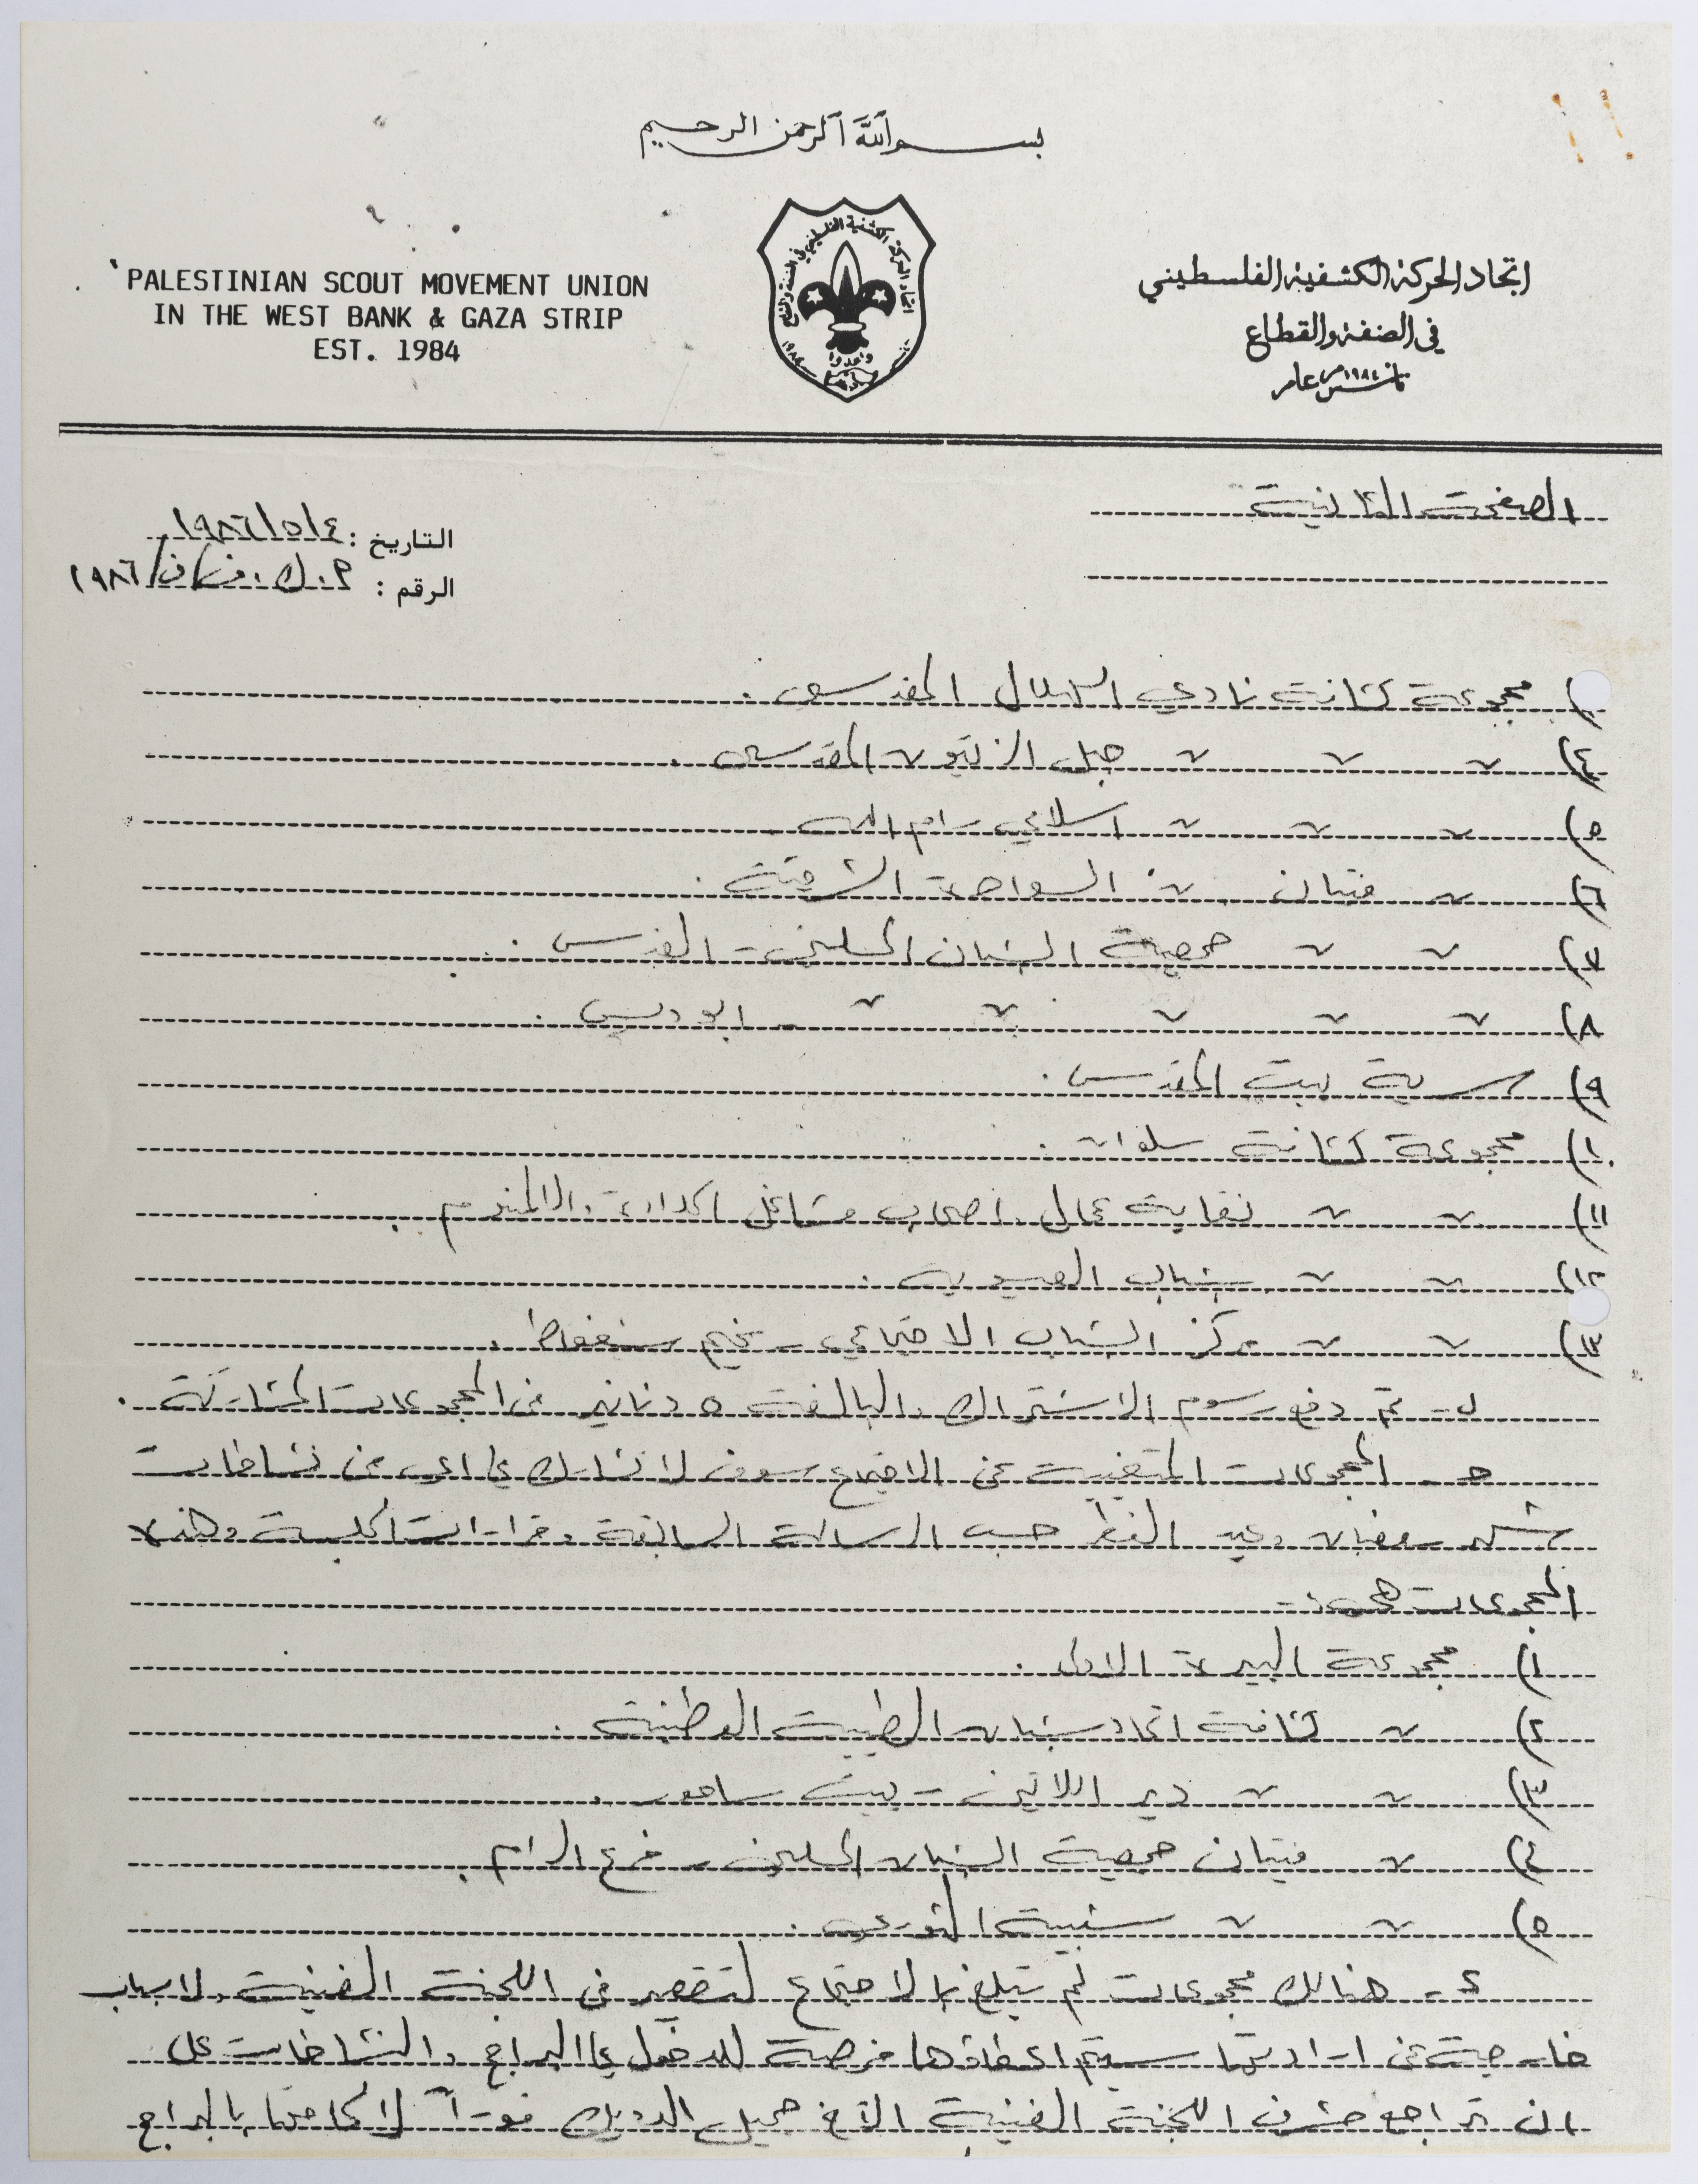 بسم الله الرحمن الرحيم
PALESTINIAN SCOUT MOVEMENT UNION
IN THE WEST BANK & GAZA STRIP
EST. 1984
اتحاد الحركة الكشفية الفلسطيني
في الضفة والقطاع
تأسس عام ١٩٨٤
الصفحة الثانية
التاريخ : ١٩٨٦/٥/٤
الرقم : ١٩٨٦/
مجموعة كشافة نادي الهلال المقدسي .
٤) 〃 〃 〃 جبل الزيتون المقدسي .
٥) 〃 〃 〃 اسلامي رام الله
٦) 〃 فتيان 〃 السواحرة الشرقية .
٧) 〃 〃 جمعية الشبان المسلمين - القدس .
٨) 〃 〃 〃 〃 〃 - ابو ديس .
٩) سرية بيت المقدس .
١٠) مجموعة كشافة سلوان .
١١) 〃 〃 نقابة عمال اصحاب مشاغل الحدادة والالمنيوم .
١٢) 〃 〃 شباب العيسوية .
١٣) 〃 〃 مركز الشباب الاجتماعي - مخيم شعفاط .
ب - تم دفع رسوم الاشتراك والبالغة ٥ دنانير من المجموعات المشاركة .
ج - المجموعات المتغيبة عن الاجتماع سوف لا تشارك في اي من نشاطات
شهر رمضان وعيد الفطر حسب الرسالة السابقة وقرارات الجلسة وهذه
المجموعات هي :-
١) مجموعة البيرة الاولى .
٢) 〃 كشافة اتحاد شبان الطيبة الوطنية .
٣) 〃 〃 دير اللاتين - بيت ساحور .
٤) 〃 فتيان جمعية الشبان المسلمين - فرع الرام .
٥) 〃 〃 شبيبة الثوري .
د - هنالك مجموعات لم تبلغ بالاجتماع لتقصير من اللجنة الفنية ولاسباب
خارجة عن ارادتها سيتم اعطاؤها فرصة للدخول في البرامج والنشاطات على
ان تراجع مشرف اللجنة الفنية الاخ جميل الدويك فوراً بالبرامج